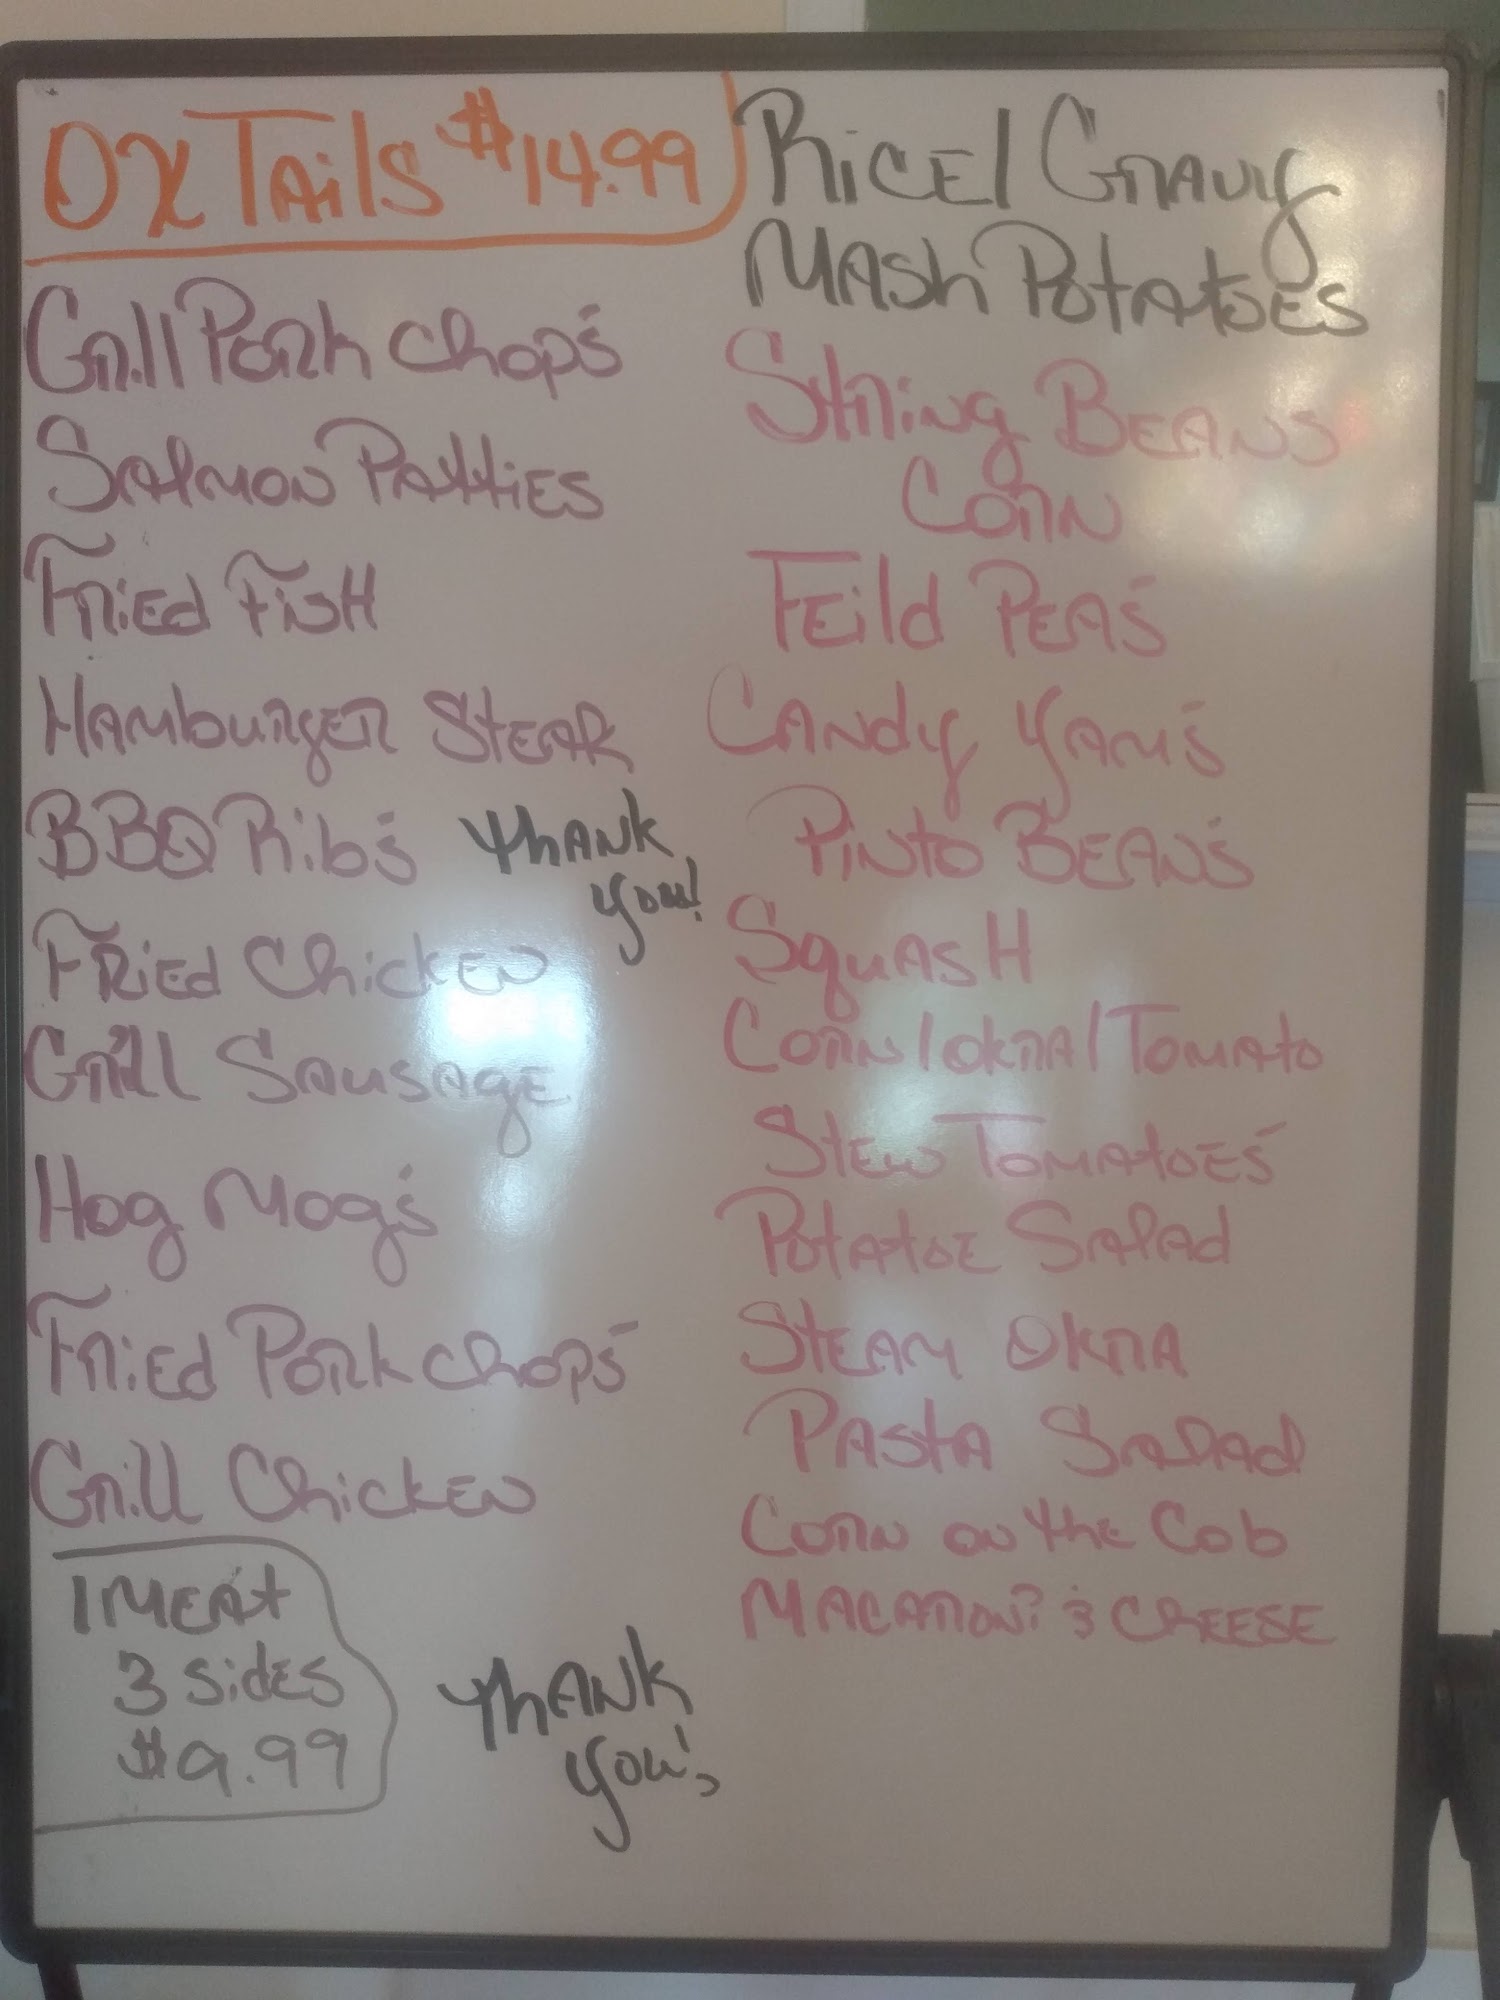 OX Tails $14.99
Grill Pork Chop's
Salmon Patties
Fried Fish
Hamburger Steak
BBQ Rib's
Thank
you!
Fried Chicken
Grill Sausage
Hog Mog's
Fried Pork chop's
Grill Chicken
1 Meat
3 sides
$9.99
Thank
you!
Rice/Gravy
Mash Potatoes
String Beans
Corn
Feild Pea's
Candy Yam's
Pinto Bean's
Squash
Corn/Okra/Tomato
Stew Tomatoe's
Potatoe Salad
Steam Okra
Pasta Salad
Corn on the Cob
Macaroni & Cheese